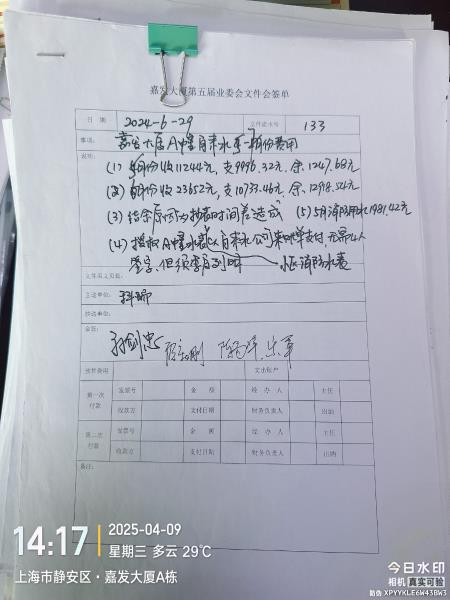 嘉发大厦第五届业委会文件会签单
日 期 2024-6-29 文件流水号 133
事项: 嘉发大厦A幢自来水 月份费用
说明:
(1) 月份收11244元, 支9996.32元. 余.1247.68元
(2) 月份收23652元, 支10733.46元. 余.12918.54元
(3) 结余原因为抄表时间差造成 (5) 5月消防用水1981.42元
(4) 授权A幢水费以自来水公司账单支付, 无需4人
签字. 但须季度列明 消防水表
文件英文页数:
主送单位:
抄送单位:
会签:
预算费用 支出账户
第一次付款 发票号 金 额 经 办 人 主任
收款方 支付日期 财务负责人 出纳
第二次付款 发票号 金 额 经 办 人 主任
收款方 支付日期 财务负责人 出纳
备注:
14:17 2025-04-09
星期三 多云 29℃
上海市静安区·嘉发大厦A栋
今日水印
相机 真实可验
防伪 XPYYKLE6W43BW3